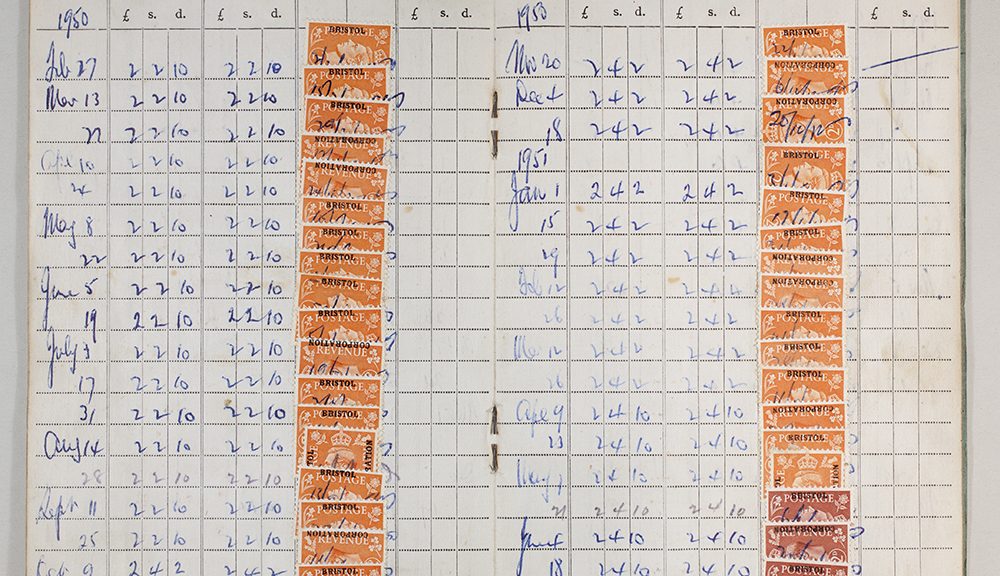 1950 £ s. d. £ s. d. £ s. d.
Feb 27 2 2 10 2 2 10
Mar 13 2 2 10 2 2 10
27 2 2 10 2 2 10
Apl 10 2 2 10 2 2 10
24 2 2 10 2 2 10
May 8 2 2 10 2 2 10
22 2 2 10 2 2 10
June 5 2 2 10 2 2 10
19 2 2 10 2 2 10
July 3 2 2 10 2 2 10
17 2 2 10 2 2 10
31 2 2 10 2 2 10
Aug 14 2 2 10 2 2 10
28 2 2 10 2 2 10
Sept 11 2 2 10 2 2 10
25 2 2 10 2 2 10
Oct 9 2 4 2 2 4 2
BRISTOL
POSTAGE
BRISTOL
POSTAGE
BRISTOL
POSTAGE
CORPORATION
REVENUE
CORPORATION
REVENUE
BRISTOL
POSTAGE
BRISTOL
POSTAGE
BRISTOL
POSTAGE
BRISTOL
POSTAGE
BRISTOL
POSTAGE
CORPORATION
REVENUE
BRISTOL
POSTAGE
BRISTOL
POSTAGE
BRISTOL
POSTAGE
BRISTOL
POSTAGE
CORPORATION
REVENUE
BRISTOL
1950 £ s. d. £ s. d. £ s. d.
Nov 20 2 4 2 2 4 2
Dec 4 2 4 2 2 4 2
18 2 4 2 2 4 2
1951
Jan 1 2 4 2 2 4 2
15 2 4 2 2 4 2
29 2 4 2 2 4 2
Feb 12 2 4 2 2 4 2
26 2 4 2 2 4 2
Mar 12 2 4 2 2 4 2
26 2 4 2 2 4 2
Apl 9 2 4 10 2 4 10
23 2 4 10 2 4 10
May 7 2 4 10 2 4 10
21 2 4 10 2 4 10
June 4 2 4 10 2 4 10
18 2 4 10 2 4 10
BRISTOL
POSTAGE
CORPORATION
CORPORATION
BRISTOL
POSTAGE
BRISTOL
POSTAGE
BRISTOL
POSTAGE
CORPORATION
REVENUE
CORPORATION
REVENUE
BRISTOL
POSTAGE
BRISTOL
POSTAGE
BRISTOL
POSTAGE
CORPORATION
REVENUE
BRISTOL
POSTAGE
BRISTOL
POSTAGE
CORPORATION
REVENUE
BRISTOL